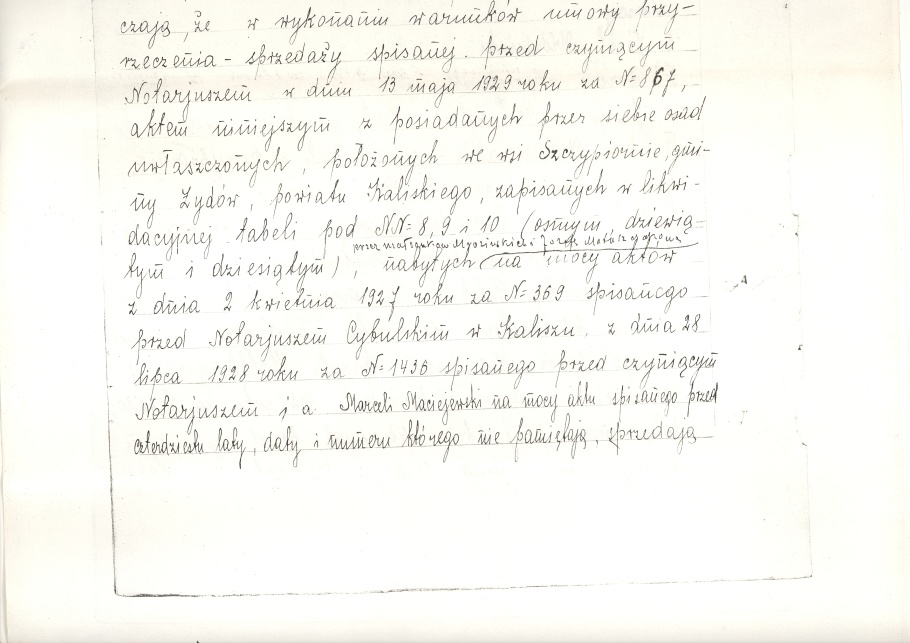 czają, że w wykonaniu warunków umowy przy-
rzeczenia - sprzedaży spisanej przed czyniącym
Notarjuszem w dniu 13 maja 1929 roku za N= 867,
aktem niniejszym z posiadanych przez siebie osad
uwłaszczonych, położonych we wsi Szczypiornie, gmi-
ny Żydów, powiatu Kaliskiego, zapisanych w likwi-
dacyjnej tabeli pod NN= 8, 9 i 10 (ósmym dziewią-
przez małżonków i Józefa
tym i dziesiątym), nabytych na mocy aktów
z dnia 2 kwietnia 1927 roku za N= 369 spisanego
przed Notarjuszem Cybulskim w Kaliszu. z dnia 28
lipca 1928 roku za N= 1436 spisanego przed czyniącym
Notarjuszem i a Marceli Maciejewski na mocy aktu spisanego przed
czterdziestu laty, daty i numeru którego nie pamiętają, sprzedają